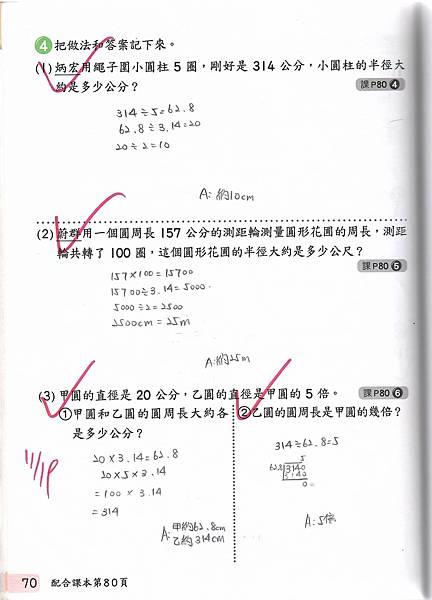 4 把做法和答案記下來。
(1) 炳宏用繩子圍小圓柱 5 圈，剛好是 314 公分，小圓柱的半徑大
約是多少公分？
課P80 4
314÷5=62.8
62.8÷3.14=20
20÷2=10
A：約10cm
(2) 蔚群用一個圓周長 157 公分的測距輪測量圓形花圃的周長，測距
輪共轉了 100 圈，這個圓形花圃的半徑大約是多少公尺？
課P80 5
157×100=15700
15700÷3.14=5000
5000÷2=2500
2500cm=25m
A：約25m
(3) 甲圓的直徑是 20 公分，乙圓的直徑是甲圓的 5 倍。
課P80 6
①甲圓和乙圓的圓周長大約各
是多少公分？
20×3.14=62.8
20×5×3.14
=100×3.14
=314
A：甲約62.8cm
乙約314cm
②乙圓的圓周長是甲圓的幾倍？
314÷62.8=5
5
62.8 3140
3140
0
A：5倍
11/19
70 配合課本第80頁